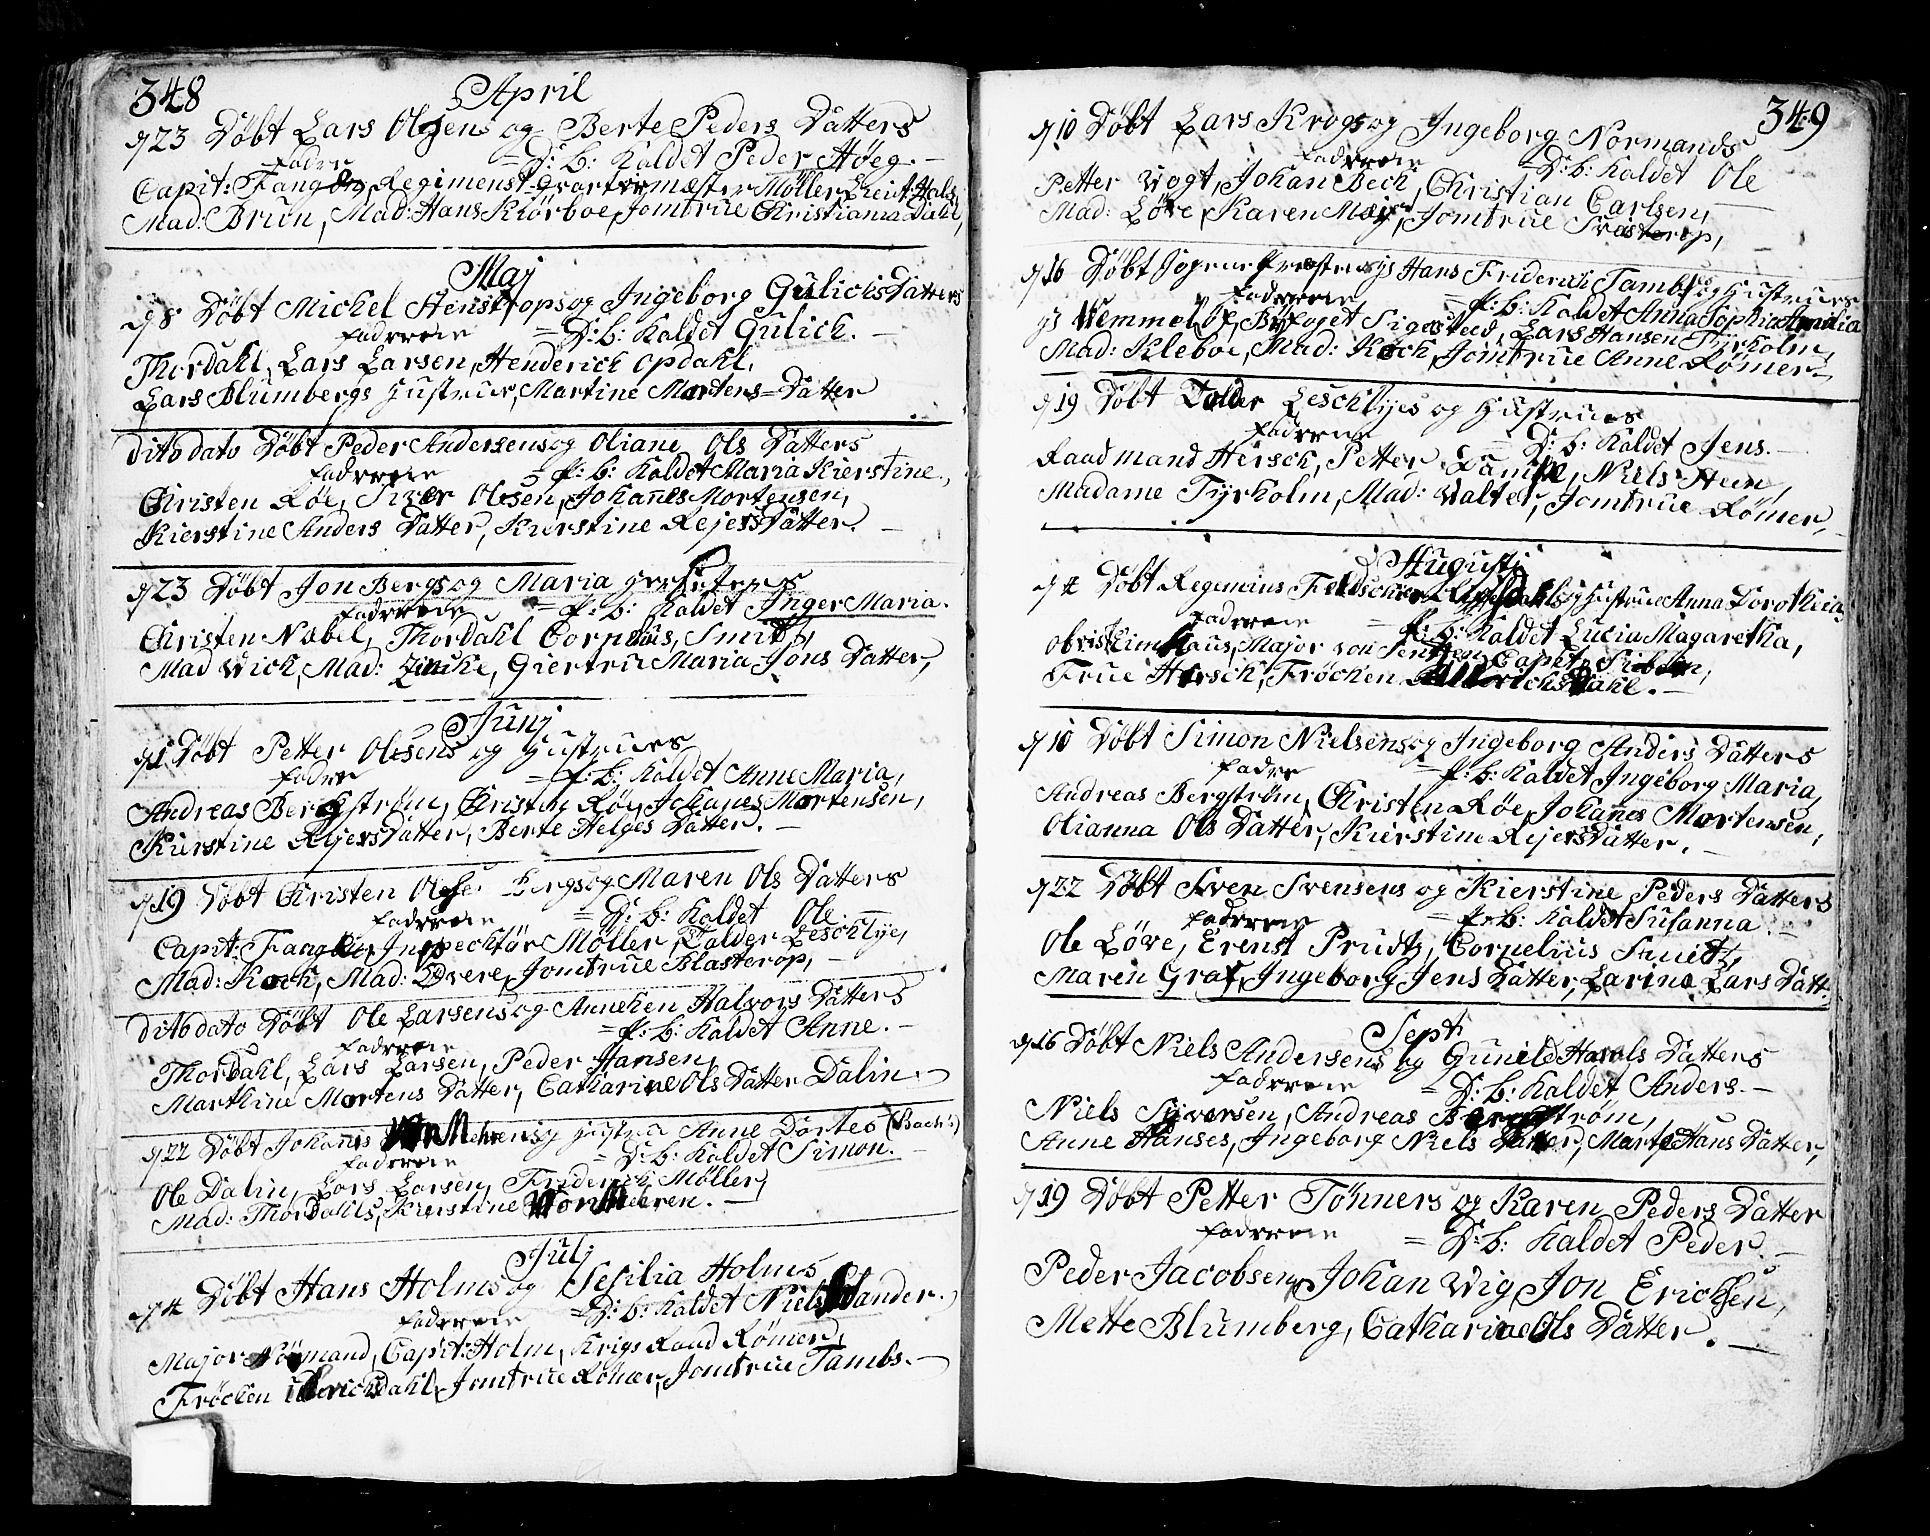 348
April
d 23 Döbt Lars Olsens og Berte Peders Datters
fadre = D: b: Kaldet Peder Höeg.-
Capit: Fangen, Regiments-Qvartermæster Möller, Lieut: Hals,
Mad: Brun, Mad: Hans Kiörboe, Jomfrue Christiana Diehl,
Maj
d 8 Döbt Michel Henstrops og Ingeborg Gulichs Datters
fadrene = D: b: Kaldet Gulich.-
Thordahl, Lars Larsen, Henderich Opdahl,
Lars Blumbergs Hustrue, Martine Mortens=Datter
dito dato Döbt Peder Andersens og Oliane Ols Datters
fadrene = P: b: Kaldet Maria Kierstine.,
Christen Röe, Siver Olesen, Johanes Mortensen,
Kierstine Anders Datter, Kierstine Rejers Datter.-
d 23 Döbt Jon Bergs og Maria
fadrene = P: b: Kaldet Inger Maria.
Christen Nabel, Thordahl Cornelius, Smith,
Mad Wich, Mad: Zincke, Giertrue Maria Jons Datter,
Junj
d 1 Döbt Petter Olesens og Hustrues
fadre = P: b: Kaldet Anne Maria,
Andreas Bergström, Christen Röe, Johanes Mortensen,
Kierstine Rejers Datter, Berte Helges Datter.-
d 19 Döbt Christen Bergs og Maren Ols Datters
fadrene = D: b: Kaldet Ole.-
Capit: Fangen, Inspechtör Möller, Tolder Leschlye,
Mad: Koch, Mad: Overe, Jomfrue Blasterop,-
dito dato Döbt Ole Larsens og Anneken Halvors Datters
fadrene = P: b: Kaldet Anne.-
Thordahl, Lars Larsen, Peder Hansen,
Marthine Mortens Datter, Catharine Ols Datter Dalin.-
d 22 Döbt Johanes Von Mehrens og Hustru Anne Dortes (Bach:)
fadrene = D: b: Kaldet Simon.-
Ole Dalin, Lars Larsen, Friderich Möller,
Mad: Thordahls, Kierstine Von Meeren.-
Julj
d 4 Döbt Hans Holms og Sesilia Holms
fadrene = D: b: Kaldet Niels Stander.,
Major Nörmand, Capit: Holm, Krigs Raad Römer,
Fröchen Ulerichsdahl, Jomfrue Römer, Jomfrue Tambs.-
349
d 10 Döbt Lars Krogs og Ingeborg Normands
fadrene = D: b: Kaldet Ole
Petter Vogt, Johan Bech, Christian Carlsen,
Mad: Löve, Karen Mejer, Jomfrue
d 16 Döbt Hans Friderich Tambs og Hustrues
fadrene = P: b: Kaldet Anna Sophia Amalia
Byfoget Sigersteed, Lars Hansen Tyrholm,
Mad: Kleboe, Mad: Koch, Jomfrue Anne Römer.-
d 19 Döbt Tolder Leschlyes og Hustrues
fadrene = D: b: Kaldet Jens.-
Raadmand Hersch, Petter, Niels Steen,
Madame Tyrholm, Mad: Valter, Jomfrue Römer,-
Augustj
d 4 Döbt Regemens Feldscher og Hustrue Anna Dorothea,
fadrene = P: b: Kaldet Lucia Magaretha,
Obrist Heimhaus, Major von Sentzen, Capit: Sibbern,
Frue Hersch, Fröchen Ulerichsdahl.-
d 10 Döbt Simon Nielsens og Ingeborg Anders Datters
fadre = P: b: Kaldet Ingeborg Maria,
Andreas Bergström, Christen Röe, Johanes Mortensen,
Olianna Ols Datter, Kierstine Rejers Datter.-
d 22 Döbt Sven Svensens og Kierstine Peders Datters
fadrene = P: b: Kaldet Susanna.-
Ole Löve, Erenst Prudtz, Cornelius Smitz,
Maren Graf, Ingeborg Jens Datter, Larina Lars Datt.
Sept
d 16 Döbt Niels Andersens og Gunild Haralds Datters
fadrene = D: b: Kaldet Anders.-
Niels Syversen, Andreas Bergström,
Anne Hanses, Ingeborg Niels Datter, Marte Hans Datter,
d 19 Döbt Petter Tönners og Karen Peders Datter
fadrene = D: b: Kaldet Peder.-
Peder Jacobsen, Johan Wig, Jon Erichsen,
Mette Blumberg, Catharina Ols Datter.-